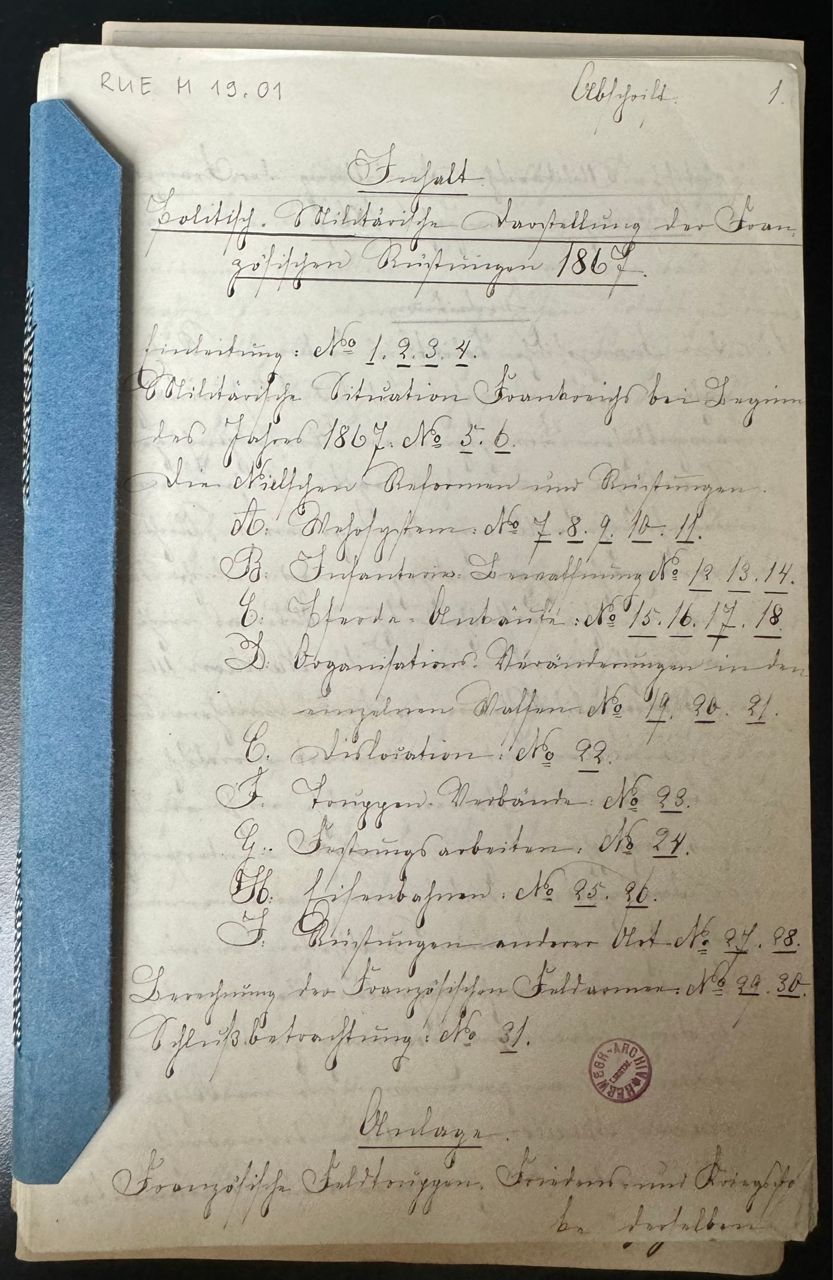 RUE M 19.01
Abschrift. 1.
Inhalt
Politisch-Militärische Darstellung der Fran-
zösischen Rüstungen 1867.
Einleitung: No 1. 2. 3. 4.
Militärische Situation Frankreichs bei Beginn
des Jahres 1867. No 5. 6.
Die Nielschen Reformen und Rüstungen.
A: Wehrsystem: No 7. 8. 9. 10. 11.
B: Infanterie-Bewaffnung No 12 13. 14.
C: Pferde-Ankäufe: No 15. 16. 17. 18
D: Organisations-Veränderungen in den
einzelnen Waffen No 19. 20. 21.
E. Dislocation: No 22.
F. Truppen-Verbände: No 23.
G: Festungsarbeiten: No 24.
H: Eisenbahnen: No 25. 26.
J: Rüstungen anderer Art No 27. 28.
Berechnung der Französischen Feldarmee: No 29. 30.
Schlußbetrachtung: No 31.
HERWEGH-ARCHIV
LIESTAL
Anlage.
Französische Feldtruppen. Friedens- und
derselben